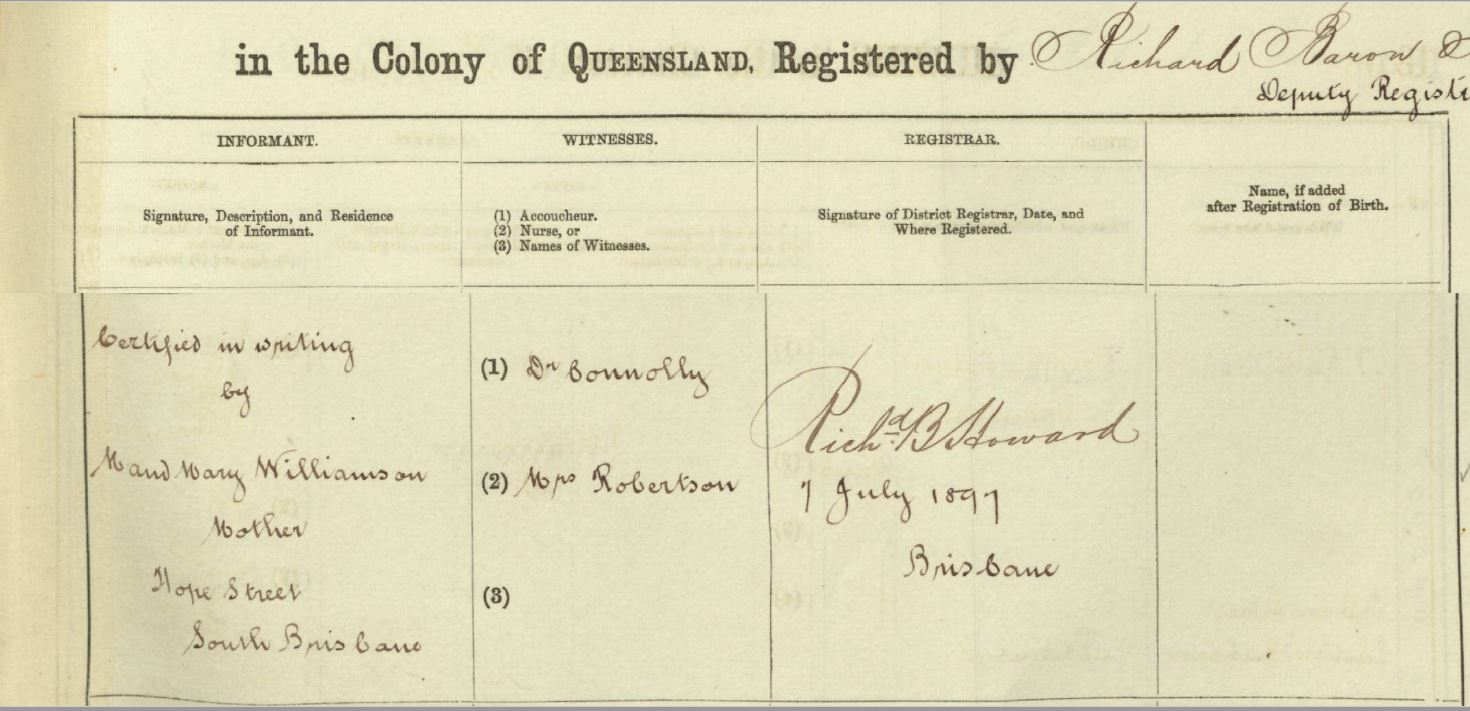 in the Colony of QUEENSLAND, Registered by Richard Baron
Deputy Regist
INFORMANT.
Signature, Description, and Residence
of Informant.
WITNESSES.
(1) Accoucheur.
(2) Nurse, or
(3) Names of Witnesses.
REGISTRAR.
Signature of District Registrar, Date, and
Where Registered.
Name, if added
after Registration of Birth.
Certified in writing
by
Maud Mary Williamson
Mother
Hope Street
South Brisbane
(1) Dr Connolly
(2) Mrs Robertson
(3)
Richd B Howard
7 July 1897
Brisbane